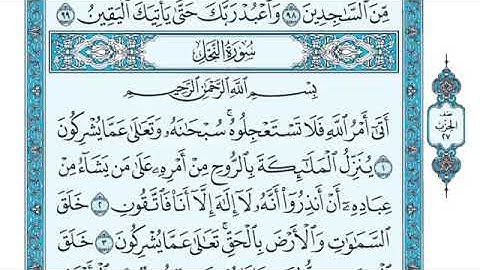 مِّنَ ٱلسَّٰجِدِينَ ٩٨ وَٱعۡبُدۡ رَبَّكَ حَتَّىٰ يَأۡتِيَكَ ٱلۡيَقِينُ ٩٩
سُورَةُ النَّحْلِ
بِسۡمِ ٱللَّهِ ٱلرَّحۡمَٰنِ ٱلرَّحِيمِ
أَتَىٰٓ أَمۡرُ ٱللَّهِ فَلَا تَسۡتَعۡجِلُوهُۚ سُبۡحَٰنَهُۥ وَتَعَٰلَىٰ عَمَّا يُشۡرِكُونَ
١ يُنَزِّلُ ٱلۡمَلَٰٓئِكَةَ بِٱلرُّوحِ مِنۡ أَمۡرِهِۦ عَلَىٰ مَن يَشَآءُ مِنۡ
عِبَادِهِۦٓ أَنۡ أَنذِرُوٓاْ أَنَّهُۥ لَآ إِلَٰهَ إِلَّآ أَنَا۠ فَٱتَّقُونِ ٢ خَلَقَ
ٱلسَّمَٰوَٰتِ وَٱلۡأَرۡضَ بِٱلۡحَقِّۚ تَعَٰلَىٰ عَمَّا يُشۡرِكُونَ ٣ خَلَقَ
نصف
الحزب
٢٧